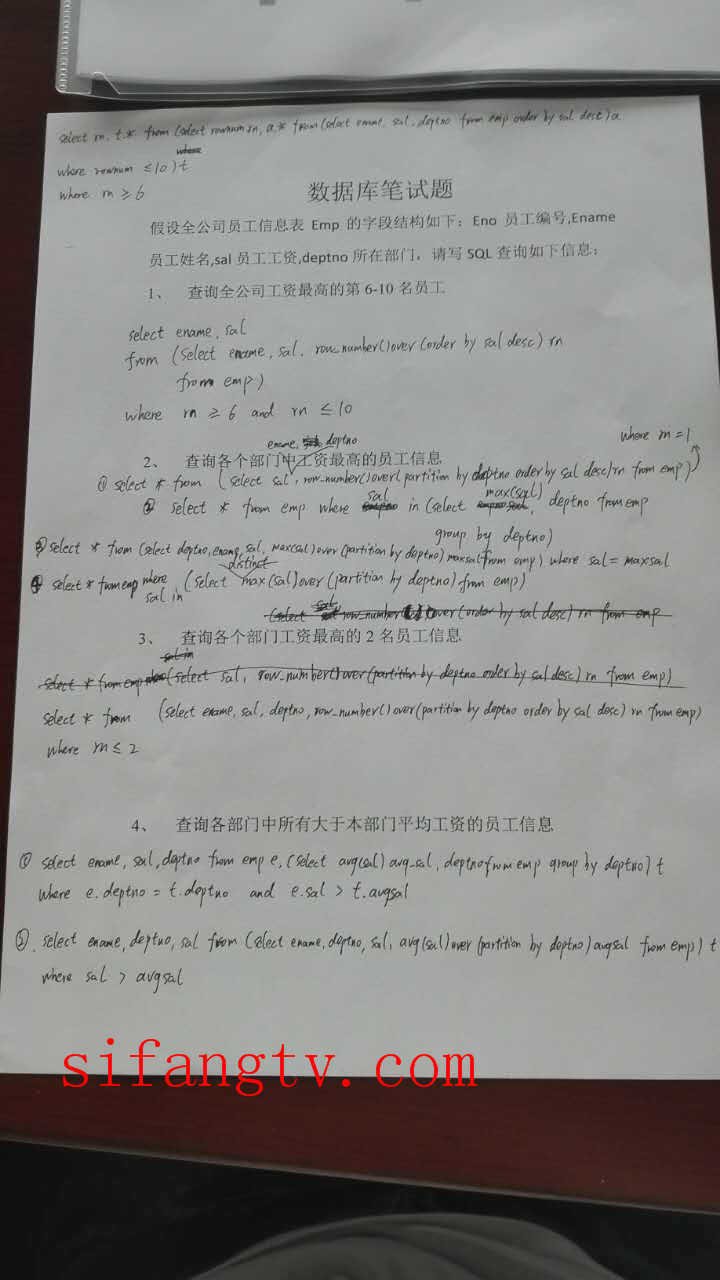 select rn, t.* from (select rownum rn, a.* from (select ename, sal, deptno from emp order by sal desc) a
where
where rownum ≤10) t
where rn ≥ 6
数据库笔试题
假设全公司员工信息表 Emp 的字段结构如下：Eno 员工编号,Ename
员工姓名,sal 员工工资,deptno 所在部门，请写 SQL 查询如下信息：
1、 查询全公司工资最高的第 6-10 名员工
select ename, sal
from (select ename, sal, row_number() over (order by sal desc) rn
from emp)
where rn ≥ 6 and rn ≤ 10
where rn = 1
ename, deptno
2、 查询各个部门中工资最高的员工信息
① select * from (select sal, row_number() over (partition by deptno order by sal desc) rn from emp)
sal max(sal)
② select * from emp where in (select , deptno from emp
group by deptno)
③ select * from (select deptno, ename, sal, max(sal) over (partition by deptno) maxsal from emp) where sal = maxsal
distinct
④ select * from emp where sal in (select max(sal) over (partition by deptno) from emp)
(select sal row_number() over (order by sal desc) rn from emp
3、 查询各个部门工资最高的 2 名员工信息
sal in
select * from emp (select sal, row_number() over (partition by deptno order by sal desc) rn from emp)
select * from (select ename, sal, deptno, row_number() over (partition by deptno order by sal desc) rn from emp)
where rn ≤ 2
4、 查询各部门中所有大于本部门平均工资的员工信息
① select ename, sal, deptno from emp e, (select avg(sal) avg_sal, deptno from emp group by deptno) t
where e.deptno = t.deptno and e.sal > t.avgsal
②. select ename, deptno, sal from (select ename, deptno, sal, avg(sal) over (partition by deptno) avgsal from emp) t
where sal > avgsal
sifangtv.com